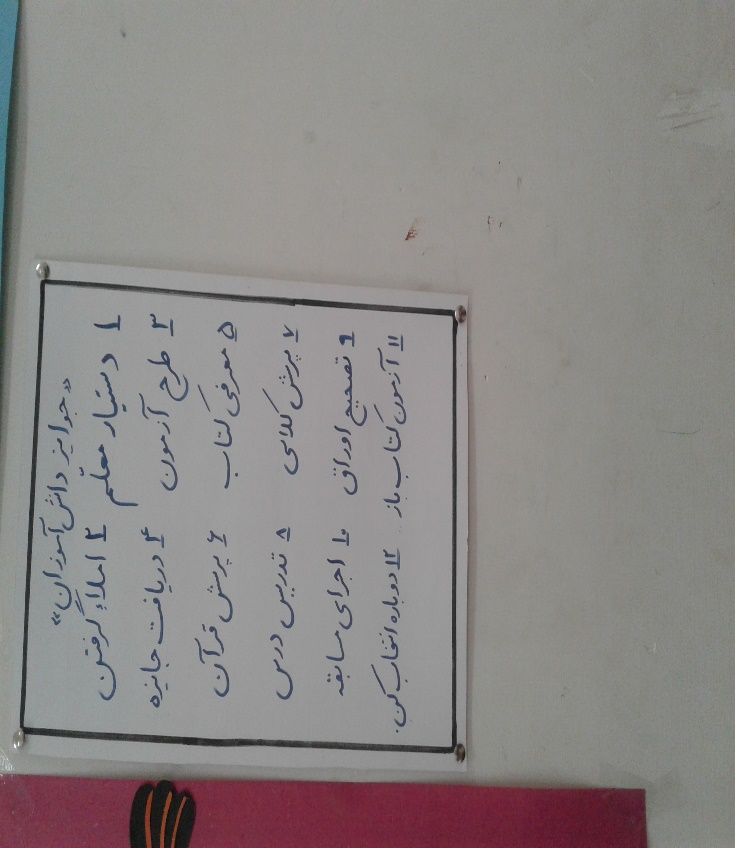 «جوایز دانش‌آموزان»
۱ دستیار معلّم ۲ املاء گرفتن
۳ طرح آزمون ۴ دریافت جایزه
۵ معرفی کتاب ۶ پرسش قرآن
۷ پرسش کلاسی ۸ تدریس درس
۹ تصحیح اوراق ۱۰ اجرای مسابقه
۱۱ آزمون کتاب باز ۱۲ دوباره انتخاب کن.